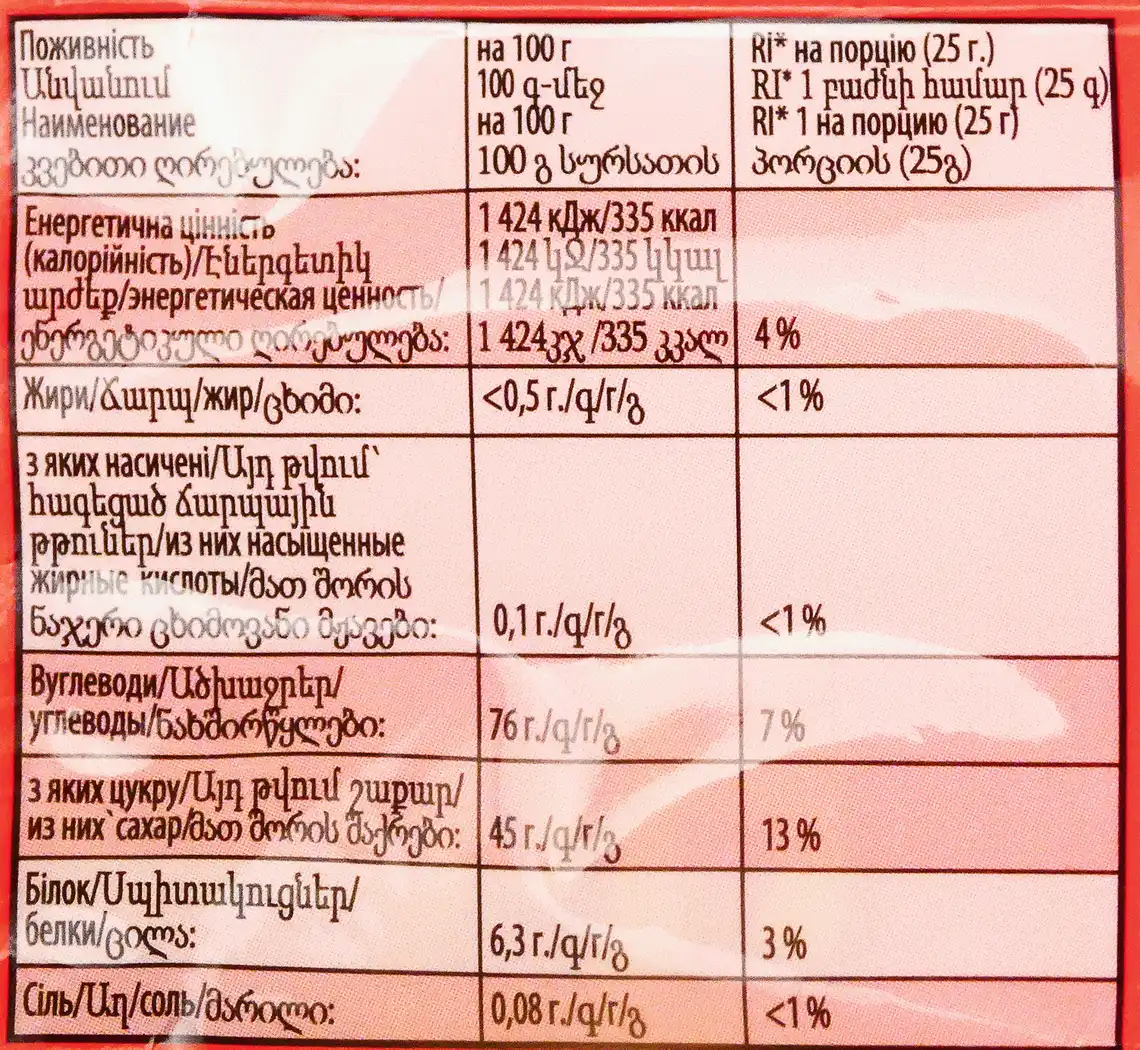 Поживність
Անվանում
Наименование
კვებითი ღირებულება:
на 100 г
100 գ-մեջ
на 100 г
100 გ სურსათის
RI* на порцію (25 г.)
RI* 1 բաժնի համար (25 գ)
RI* 1 на порцию (25 г)
პორციის (25გ)
Енергетична цінність
(калорійність)/Էներգետիկ
արժեք/энергетическая ценность/
ენერგეტიკული ღირებულება:
1 424 кДж/335 ккал
1 424 կՋ/335 կկալ
1 424 кДж/335 ккал
1 424კჯ /335 კკალ
4 %
Жири/Ճարպ/жир/ცხიმი:
<0,5 г./գ/г/გ
<1 %
з яких насичені/Այդ թվում՝
հագեցած ճարպային
թթուներ/из них насыщенные
жирные кислоты/მათ შორის
ნაჯერი ცხიმოვანი მჟავები:
0,1 г./գ/г/გ
<1 %
Вуглеводи/Ածխաջրեր/
углеводы/ნახშირწყლები:
76 г./գ/г/გ
7 %
з яких цукру/Այդ թվում շաքար/
из них`сахар/მათ შორის შაქრები:
45 г./գ/г/გ
13 %
Білок/Սպիտակուցներ/
белки/ცილა:
6,3 г./գ/г/გ
3 %
Сіль/Աղ/соль/მარილი:
0,08 г./գ/г/გ
<1 %